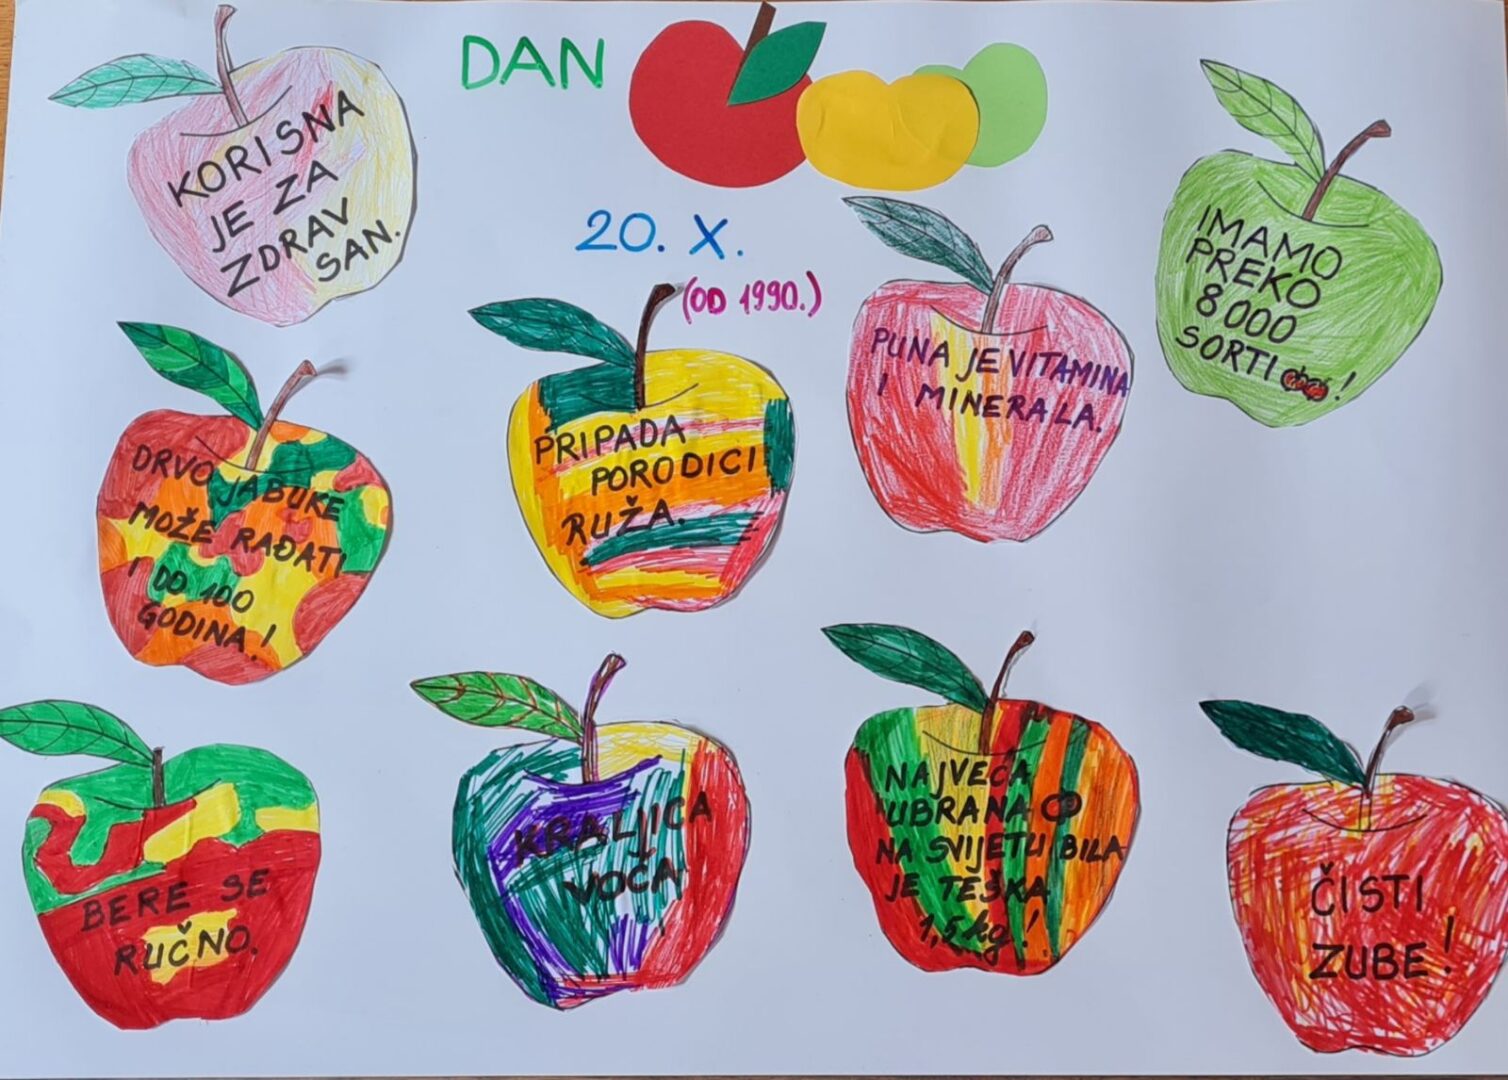 DAN
20. X.
(OD 1990.)
KORISNA
JE ZA
ZDRAV
SAN.
IMAMO
PREKO
8000
SORTI !
PUNA JE VITAMINA
I MINERALA.
PRIPADA
PORODICI
RUŽA.
DRVO JABUKE
MOŽE RAĐATI
I DO 100
GODINA!
BERE SE
RUČNO.
KRALJICA
VOĆA
NAJVEĆA
UBRANA
NA SVIJETU BILA
JE TEŠKA
1,5 kg!
ČISTI
ZUBE!